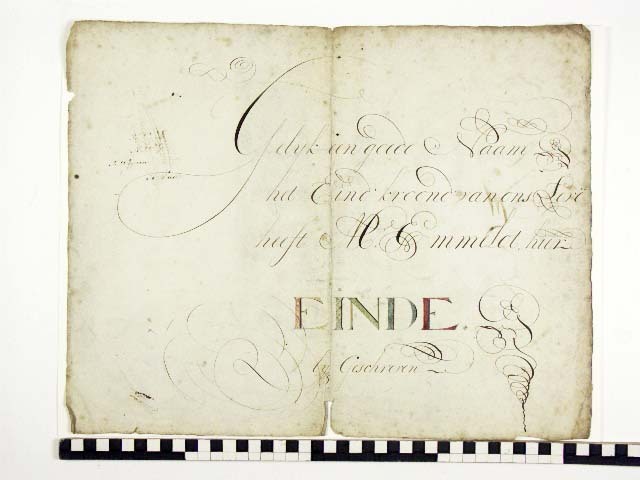 Gelyk een goede Naam
het Eind kroond van ons
heeft M. Emmelot, hier
EINDE.
Geschreven